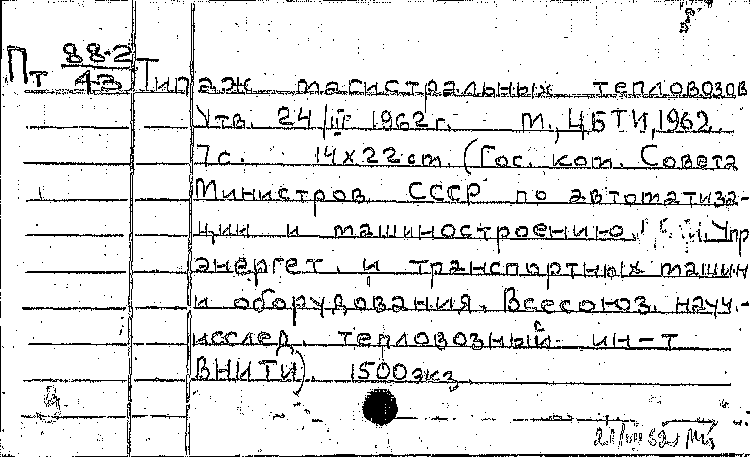 Пт 88-2
43
Типаж магистральных тепловозов
Утв. 24/III 1962г. М., ЦБТИ, 1962.
7с. 14x22см. (Гос. ком. Совета
Министров СССР по автоматиза-
ции и машиностроению. Упр
энергет. и транспортных машин
и оборудования. Всесоюз. науч.-
исслед. тепловозный ин-т
ВНИТИ). 1500экз.